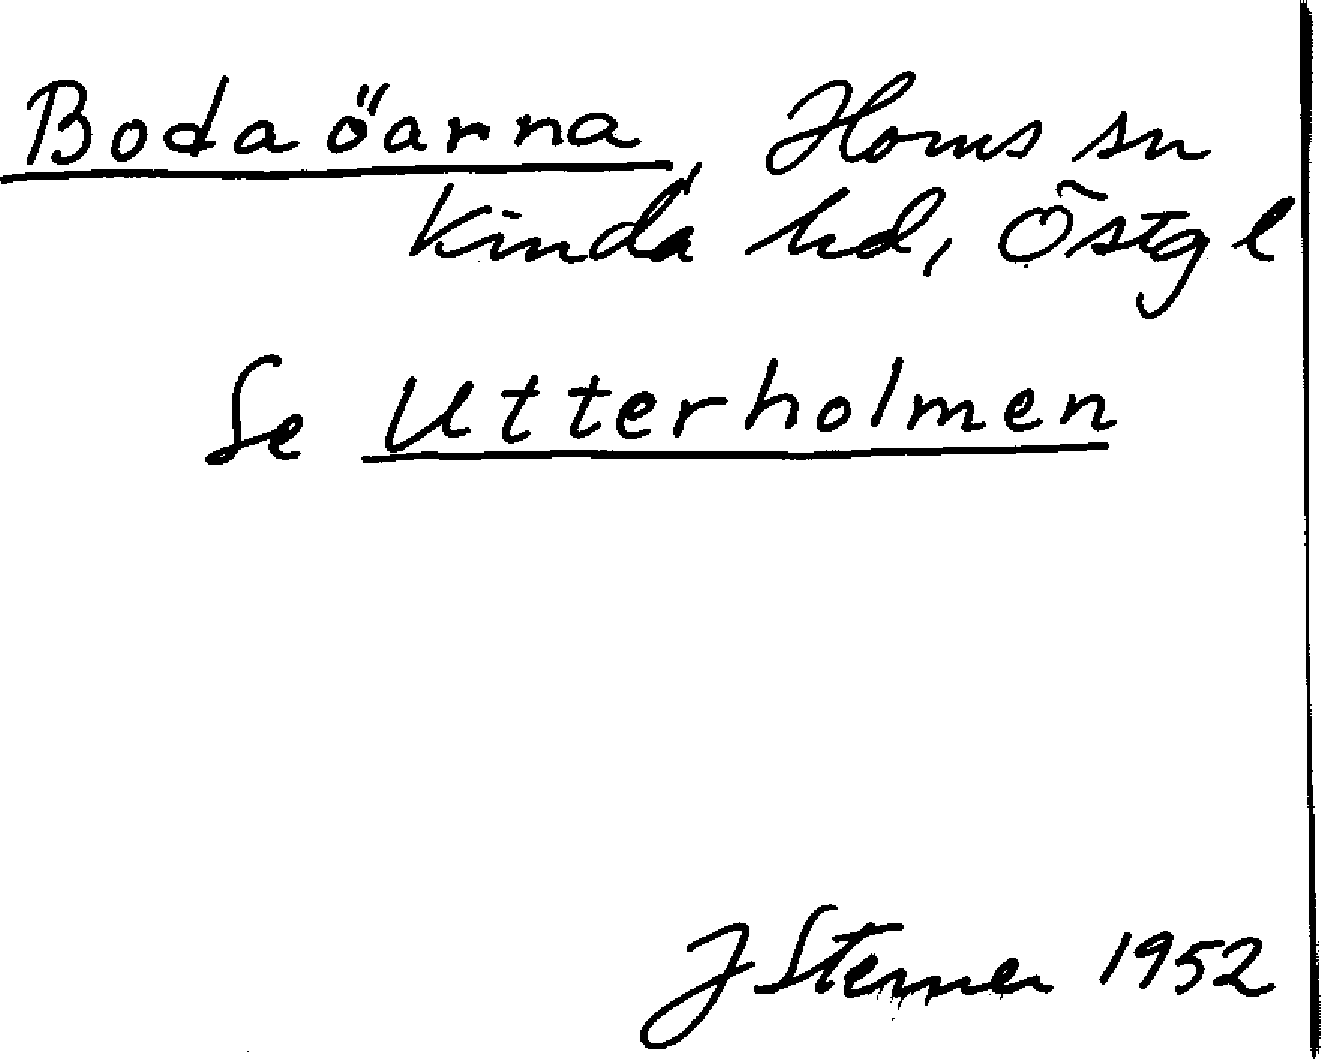 Bodaöarna, Horns sn
Kinda hd, Östg l
Se Utterholmen
J Sterner 1952